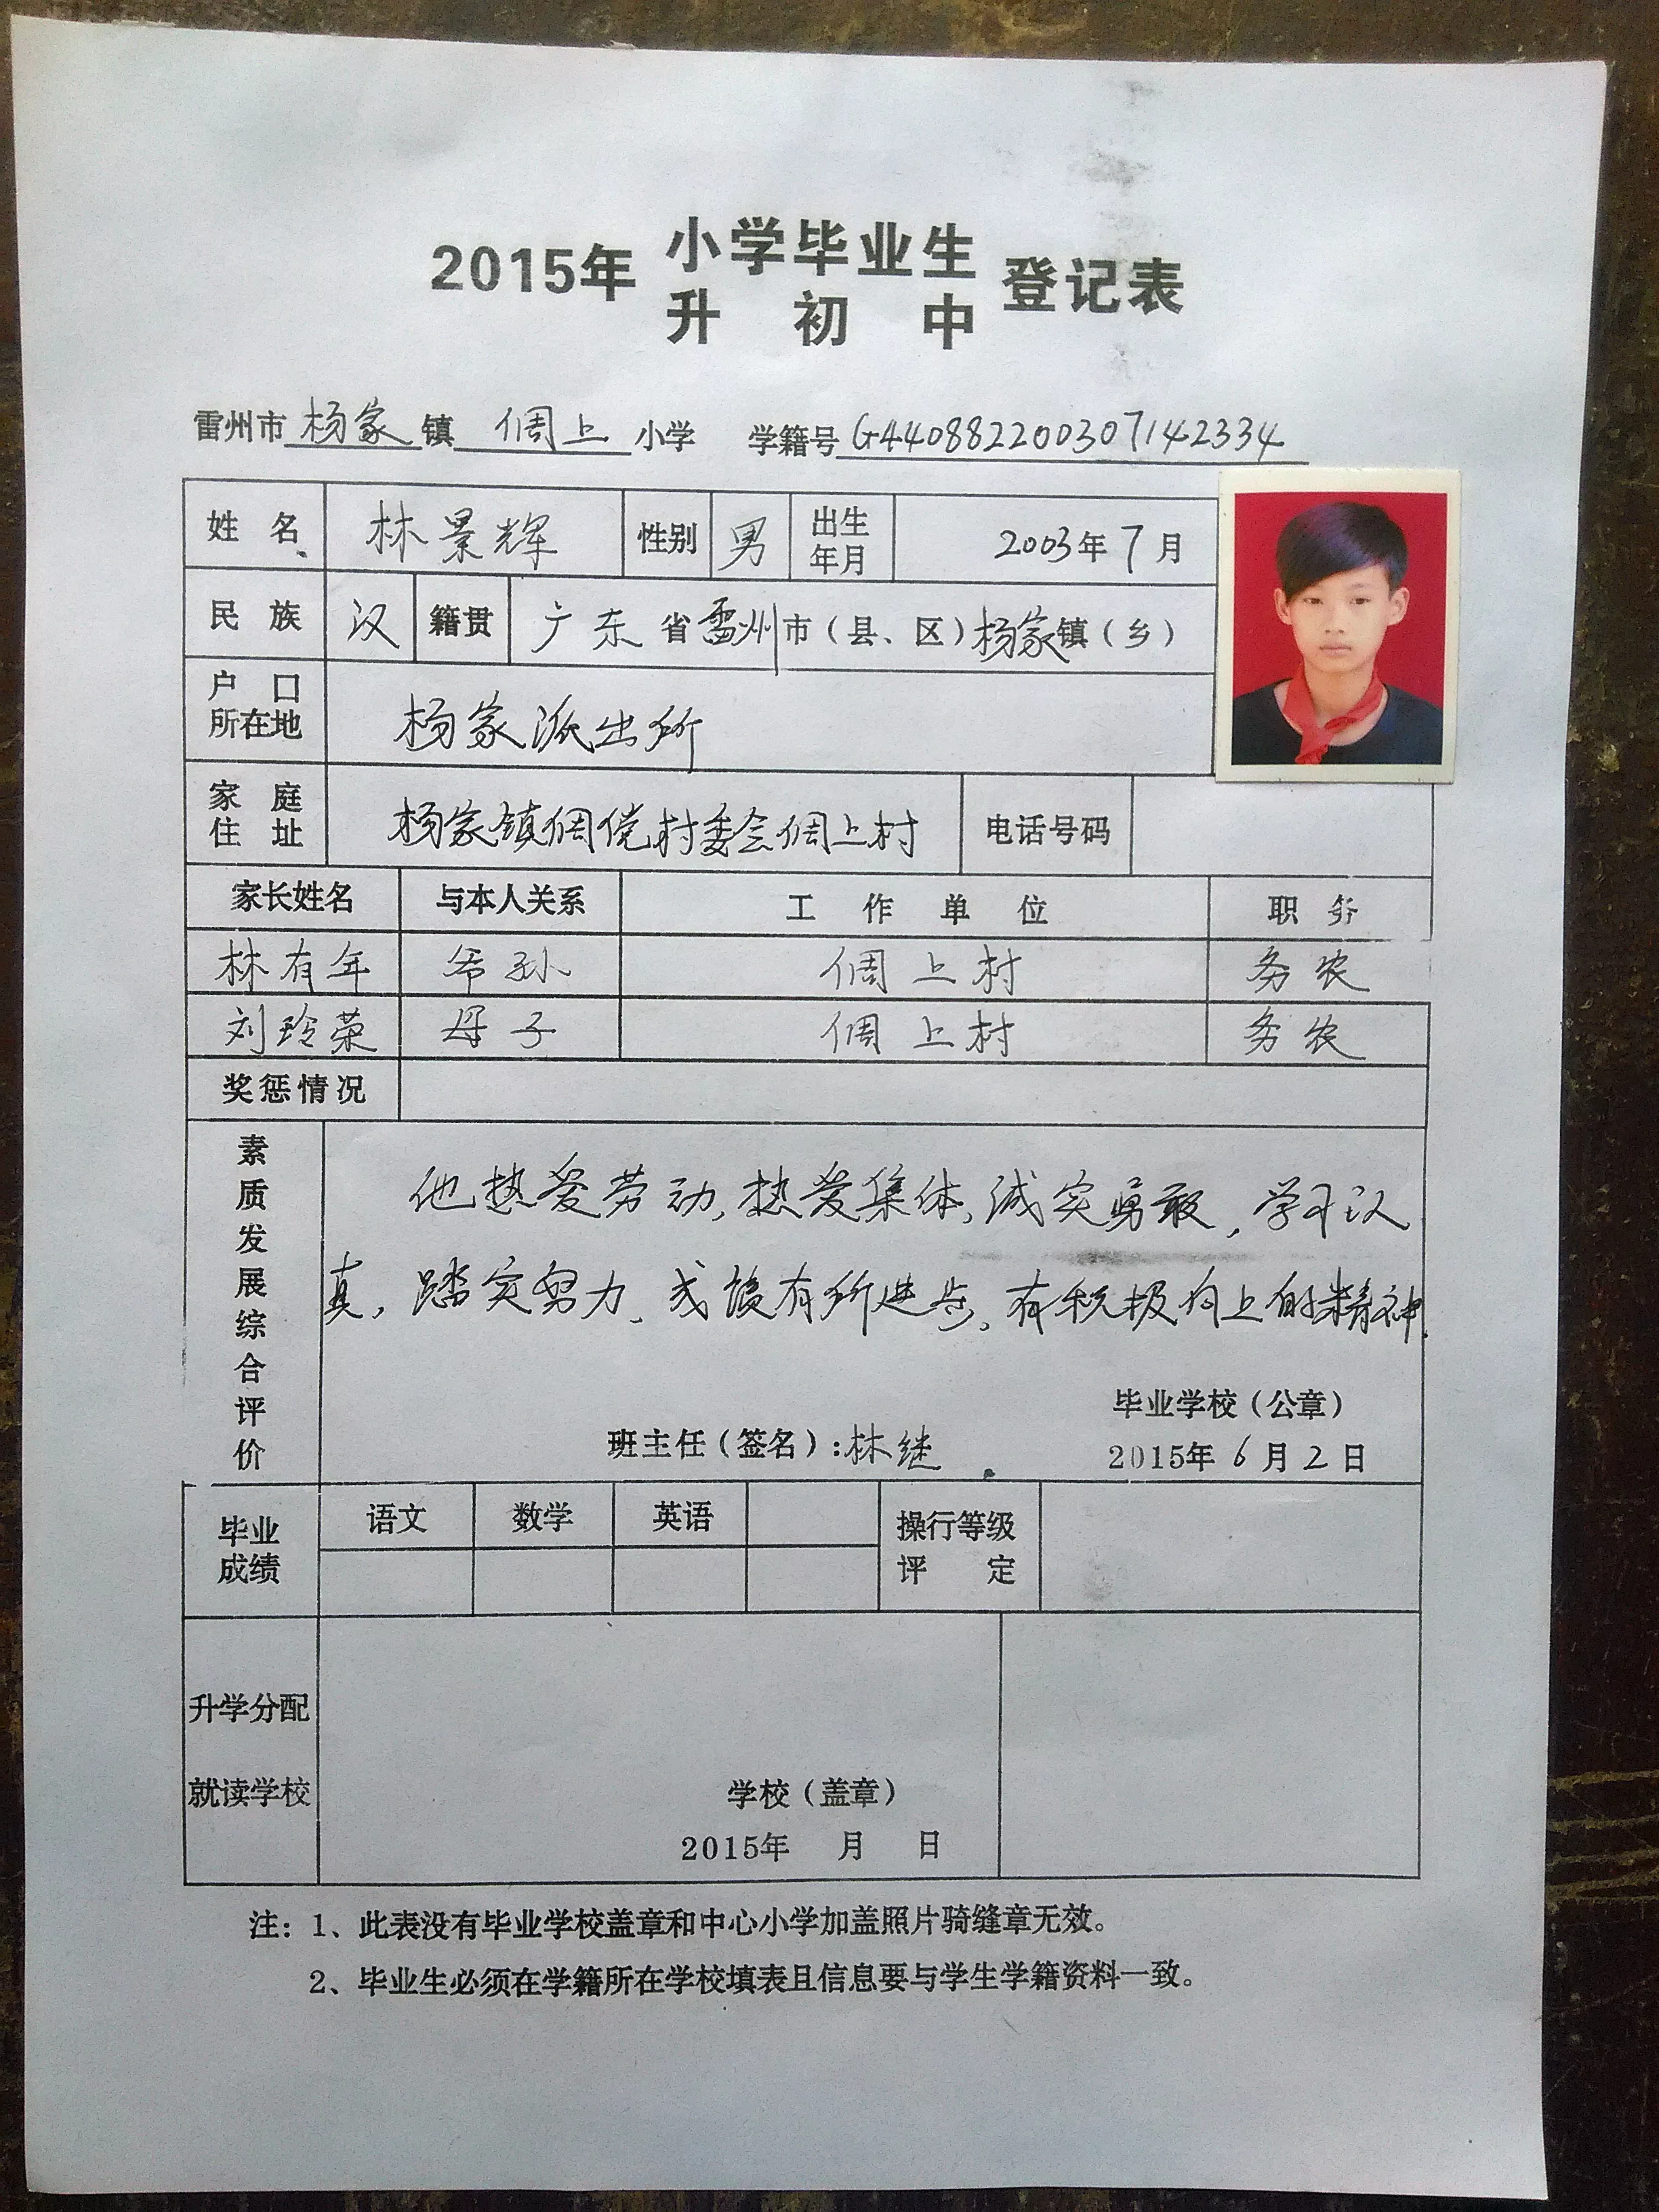 2015年 小学毕业生 登记表
升初中
雷州市杨家镇倜上小学 学籍号G440882200307142334
姓名 林景辉 性别 男 出生年月 2003年7月
民族 汉 籍贯 广东省雷州市（县、区）杨家镇（乡）
户口所在地 杨家派出所
家庭住址 杨家镇倜傥村委会倜上村 电话号码
家长姓名 与本人关系 工作单位 职务
林有年 爷孙 倜上村 务农
刘玲荣 母子 倜上村 务农
奖惩情况
素质发展综合评价
他热爱劳动,热爱集体,诚实勇敢,学习认
真,踏实努力、成绩有所进步,有积极向上的精神.
毕业学校（公章）
班主任（签名）:林继 2015年6月2日
毕业成绩 语文 数学 英语 操行等级评定
升学分配
就读学校 学校（盖章）
2015年 月 日
注：1、此表没有毕业学校盖章和中心小学加盖照片骑缝章无效。
2、毕业生必须在学籍所在学校填表且信息要与学生学籍资料一致。